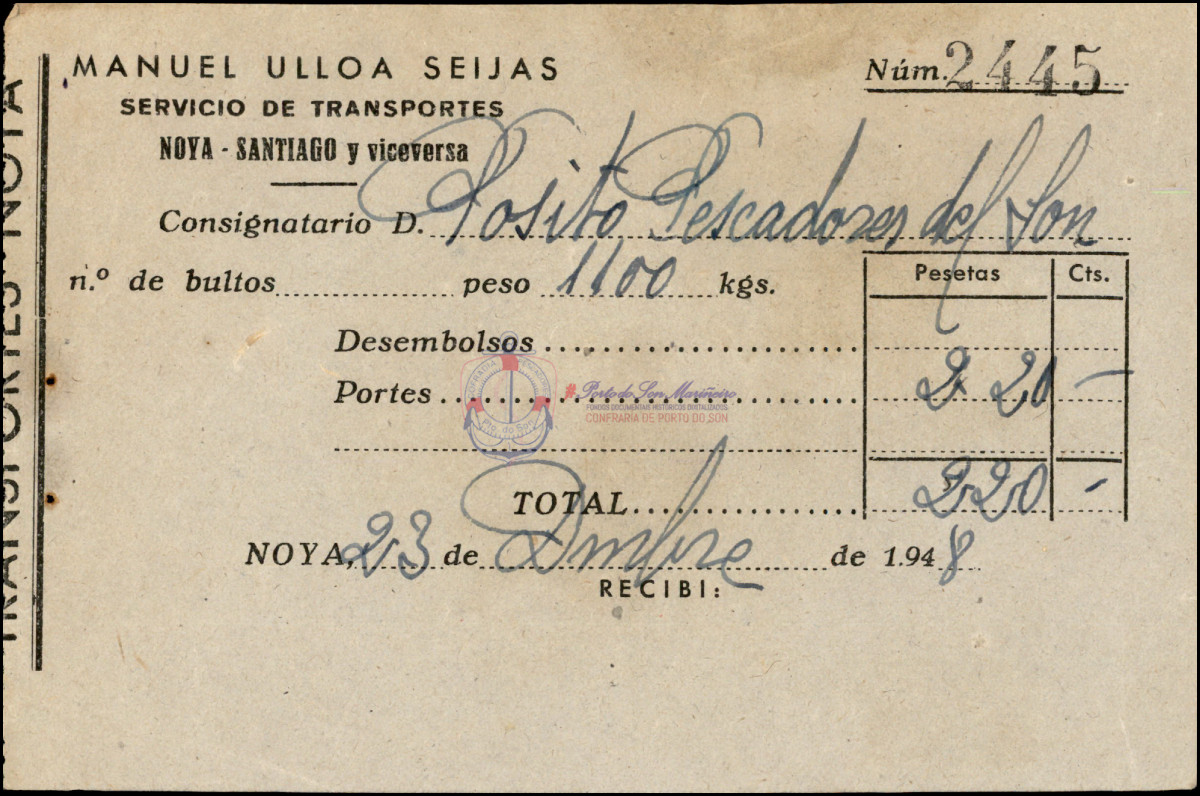 MANUEL ULLOA SEIJAS
Núm. 2445
SERVICIO DE TRANSPORTES
NOYA - SANTIAGO y viceversa
Consignatario D. Posito Pescadores del Son
n.º de bultos peso 1100 kgs.
Pesetas Cts.
Desembolsos
Portes 220 -
TOTAL 220 -
NOYA, 23 de Dmbre de 1.948
RECIBI:
TRANSPORTES NOYA
COFRADIA PESCADORES
Pto. do Son
#Porto do Son Mariñeiro
FONDOS DOCUMENTAIS HISTÓRICOS DIXITALIZADOS
CONFRARÍA DE PORTO DO SON